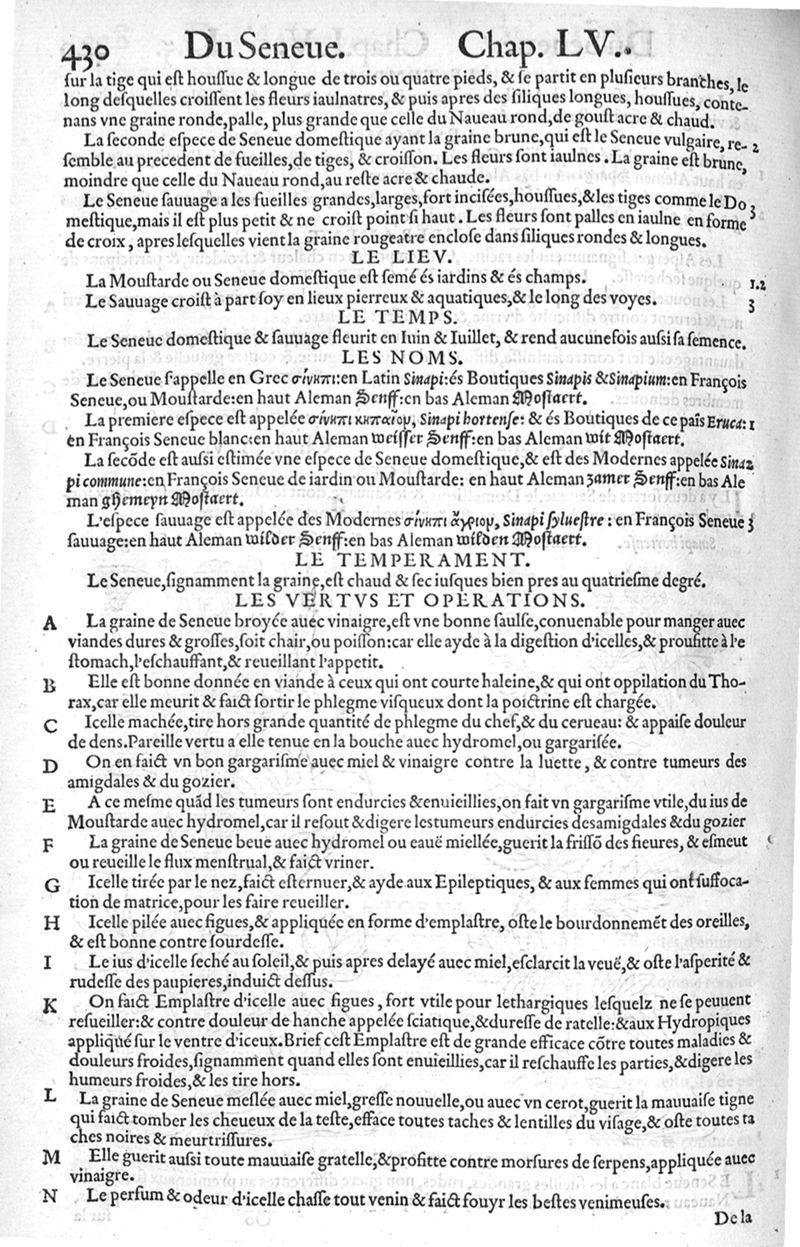 430 Du Seneue. Chap. LV.
sur la tige qui est houssue & longue de trois ou quatre pieds, & se partit en plusieurs branches, le
long desquelles croissent les fleurs iaulnatres, & puis apres des siliques longues, houssues, conte-
nans vne graine ronde, palle, plus grande que celle du Naueau rond, de goust acre & chaud.
La seconde espece de Seneue domestique ayant la graine brune, qui est le Seneue vulgaire, re- 2
semble au precedent de fueilles, de tiges, & croisson. Les fleurs sont iaulnes. La graine est brune,
moindre que celle du Naueau rond, au reste acre & chaude.
Le Seneue sauuage a les fueilles grandes, larges, fort incisées, houssues, & les tiges comme le Do 3
mestique, mais il est plus petit & ne croist point si haut. Les fleurs sont palles en iaulne en forme
de croix, apres lesquelles vient la graine rougeatre enclose dans siliques rondes & longues.
LE LIEV.
La Moustarde ou Seneue domestique est semé és iardins & és champs. 1.2
Le Sauuage croist à part soy en lieux pierreux & aquatiques, & le long des voyes. 3
LE TEMPS.
Le Seneue domestique & sauuage fleurit en Iuin & Iuillet, & rend aucunefois aussi sa semence.
LES NOMS.
Le Seneue s'appelle en Grec σίνηπι: en Latin Sinapi: és Boutiques Sinapis & Sinapium: en François
Seneue, ou Moustarde: en haut Aleman Senff: en bas Aleman Mostaert.
La premiere espece est appelée σίνηπι κηπαῖον, Sinapi hortense: & és Boutiques de ce païs Eruca: 1
en François Seneue blanc: en haut Aleman weisser Senff: en bas Aleman wit Mostaert.
La secōde est aussi estimée vne espece de Seneue domestique, & est des Modernes appelée Sina 2
pi commune: en François Seneue de iardin ou Moustarde: en haut Aleman zamer Senff: en bas Ale
man ghemeyn Mostaert.
L'espece sauuage est appelée des Modernes σίνηπι ἄγριον, Sinapi syluestre: en François Seneue 3
sauuage: en haut Aleman wilder Senff: en bas Aleman wilden Mostaert.
LE TEMPERAMENT.
Le Seneue, signamment la graine, est chaud & sec iusques bien pres au quatriesme degré.
LES VERTVS ET OPERATIONS.
A La graine de Seneue broyée auec vinaigre, est vne bonne saulse, conuenable pour manger auec
viandes dures & grosses, soit chair, ou poisson: car elle ayde à la digestion d'icelles, & proufitte à l'e
stomach, l'eschauffant, & reueillant l'appetit.
B Elle est bonne donnée en viande à ceux qui ont courte haleine, & qui ont oppilation du Tho-
rax, car elle meurit & faict sortir le phlegme visqueux dont la poictrine est chargée.
C Icelle machée, tire hors grande quantité de phlegme du chef, & du cerueau: & appaise douleur
de dens. Pareille vertu a elle tenue en la bouche auec hydromel, ou gargarisée.
D On en faict vn bon gargarisme auec miel & vinaigre contre la luette, & contre tumeurs des
amigdales & du gozier.
E A ce mesme quād les tumeurs sont endurcies & enuieillies, on fait vn gargarisme vtile, du ius de
Moustarde auec hydromel, car il resout & digere les tumeurs endurcies des amigdales & du gozier
F La graine de Seneue beuë auec hydromel ou eauë miellée, guerit la frissō des fieures, & esmeut
ou reueille le flux menstrual, & faict vriner.
G Icelle tirée par le nez, faict esternuer, & ayde aux Epileptiques, & aux femmes qui ont suffoca-
tion de matrice, pour les faire reueiller.
H Icelle pilée auec figues, & appliquée en forme d'emplastre, oste le bourdonnemēt des oreilles,
& est bonne contre sourdesse.
I Le ius d'icelle seché au soleil, & puis apres delayé auec miel, esclarcit la veuë, & oste l'asperité &
rudesse des paupieres, induict dessus.
K On faict Emplastre d'icelle auec figues, fort vtile pour lethargiques lesquelz ne se peuuent
resueiller: & contre douleur de hanche appelée sciatique, & duresse de ratelle: & aux Hydropiques
appliqué sur le ventre d'iceux. Brief cest Emplastre est de grande efficace cōtre toutes maladies &
douleurs froides, signamment quand elles sont enuieillies, car il reschauffe les parties, & digere les
humeurs froides, & les tire hors.
L La graine de Seneue meslée auec miel, gresse nouuelle, ou auec vn cerot, guerit la mauuaise tigne
qui faict tomber les cheueux de la teste, efface toutes taches & lentilles du visage, & oste toutes ta
ches noires & meurtrissures.
M Elle guerit aussi toute mauuaise gratelle, & profitte contre morsures de serpens, appliquée auec
vinaigre.
N Le perfum & odeur d'icelle chasse tout venin & faict fouyr les bestes venimeuses.
De la